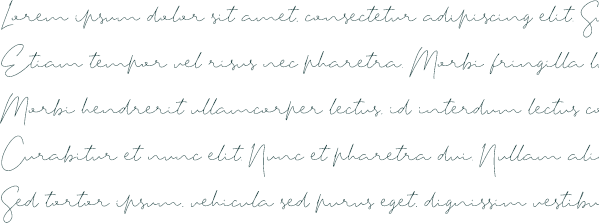 Lorem ipsum dolor sit amet, consectetur adipiscing elit. Su
Etiam tempor vel risus nec pharetra. Morbi fringilla l
Morbi hendrerit ullamcorper lectus, id interdum lectus co
Curabitur et nunc elit. Nunc et pharetra dui. Nullam ali
Sed tortor ipsum, vehicula sed purus eget, dignissim vestibu